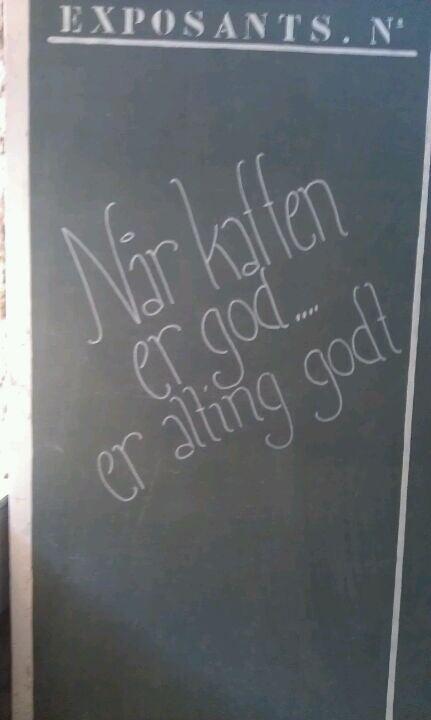 EXPOSANTS. Nˢ
Når kaffen
er god....
er alting godt